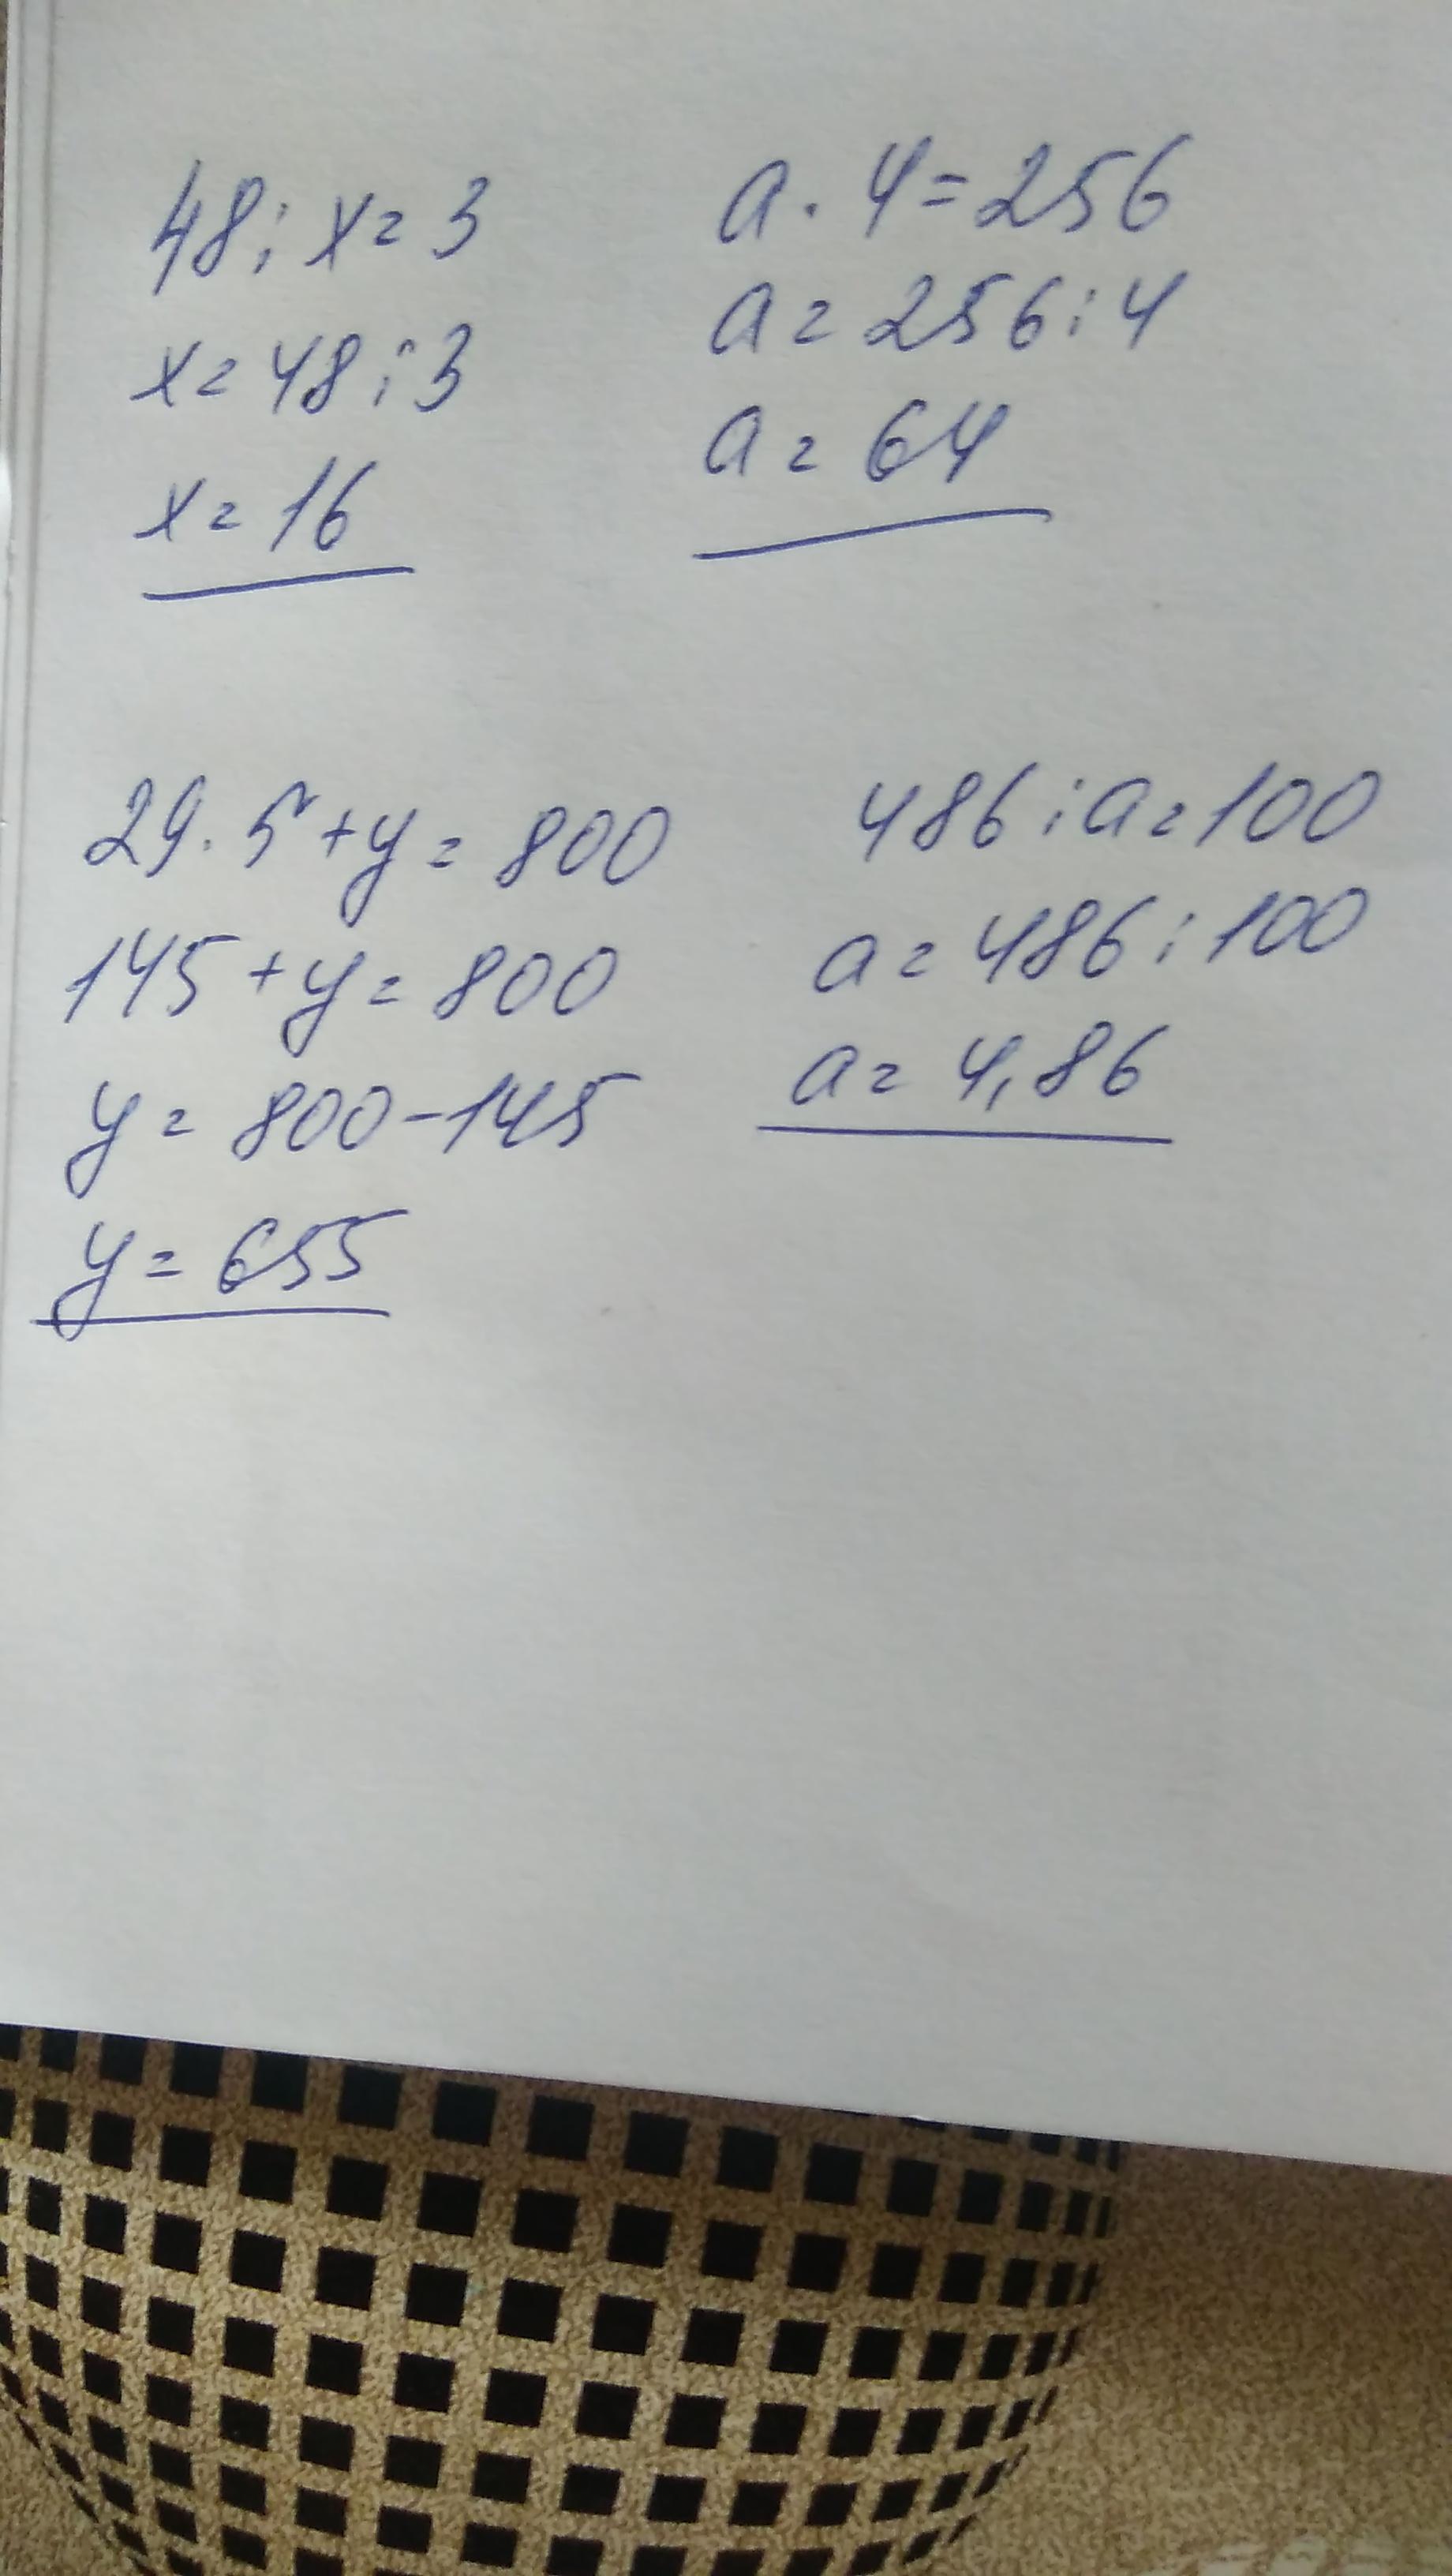 48 : x = 3
x = 48 : 3
x = 16
a · 4 = 256
a = 256 : 4
a = 64
29 · 5 + y = 800
145 + y = 800
y = 800 - 145
y = 655
486 : a = 100
a = 486 : 100
a = 4,86